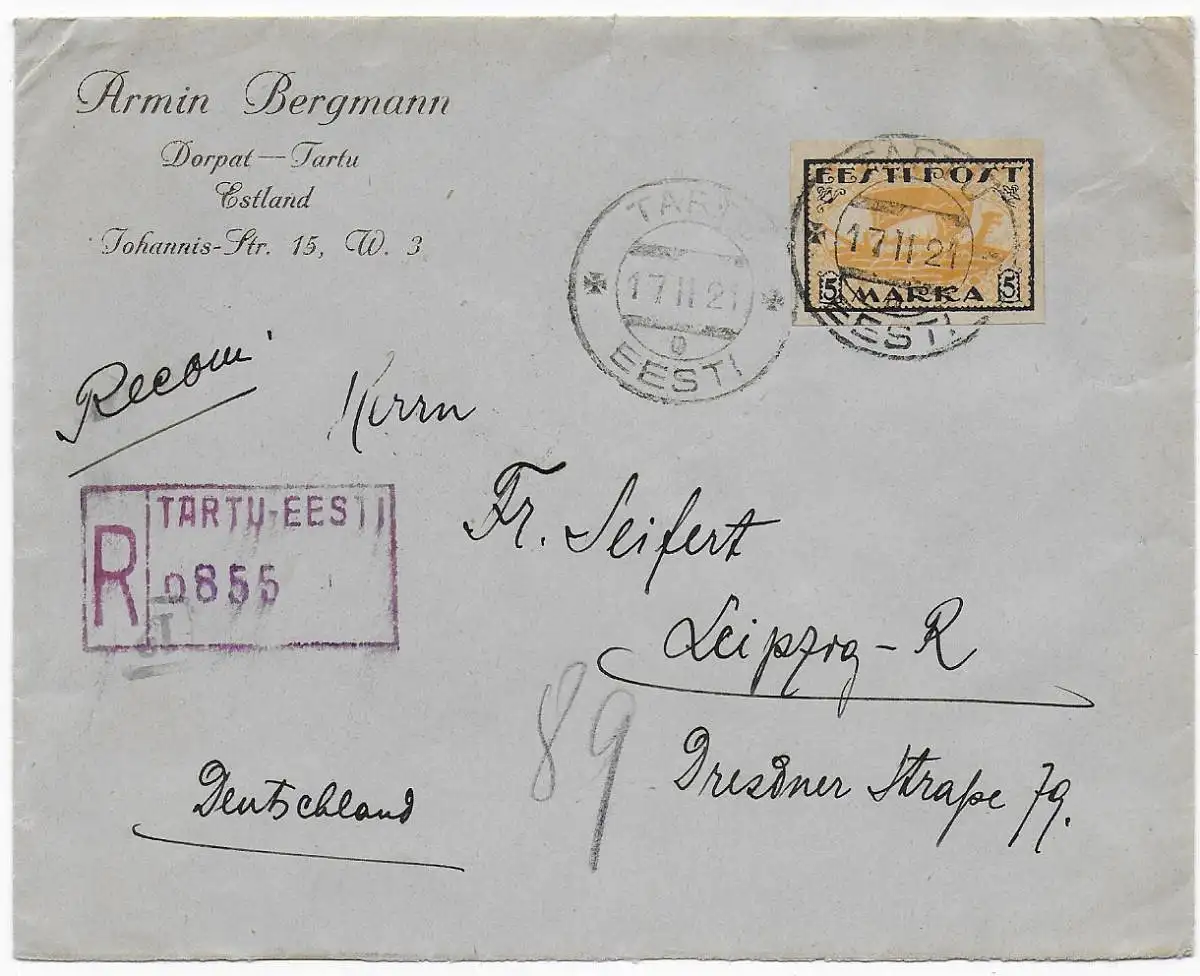 Armin Bergmann
Dorpat — Tartu
Estland
Johannis-Str. 15, W. 3
EESTI POST
5 MARKA 5
TARTU
17 II 21
EESTI
TARTU
17 II 21
EESTI
Recom
Herrn
Fr. Seifert
Leipzig - R
Dresdner Straße 79.
Deutschland
R TARTU-EESTI
855
89